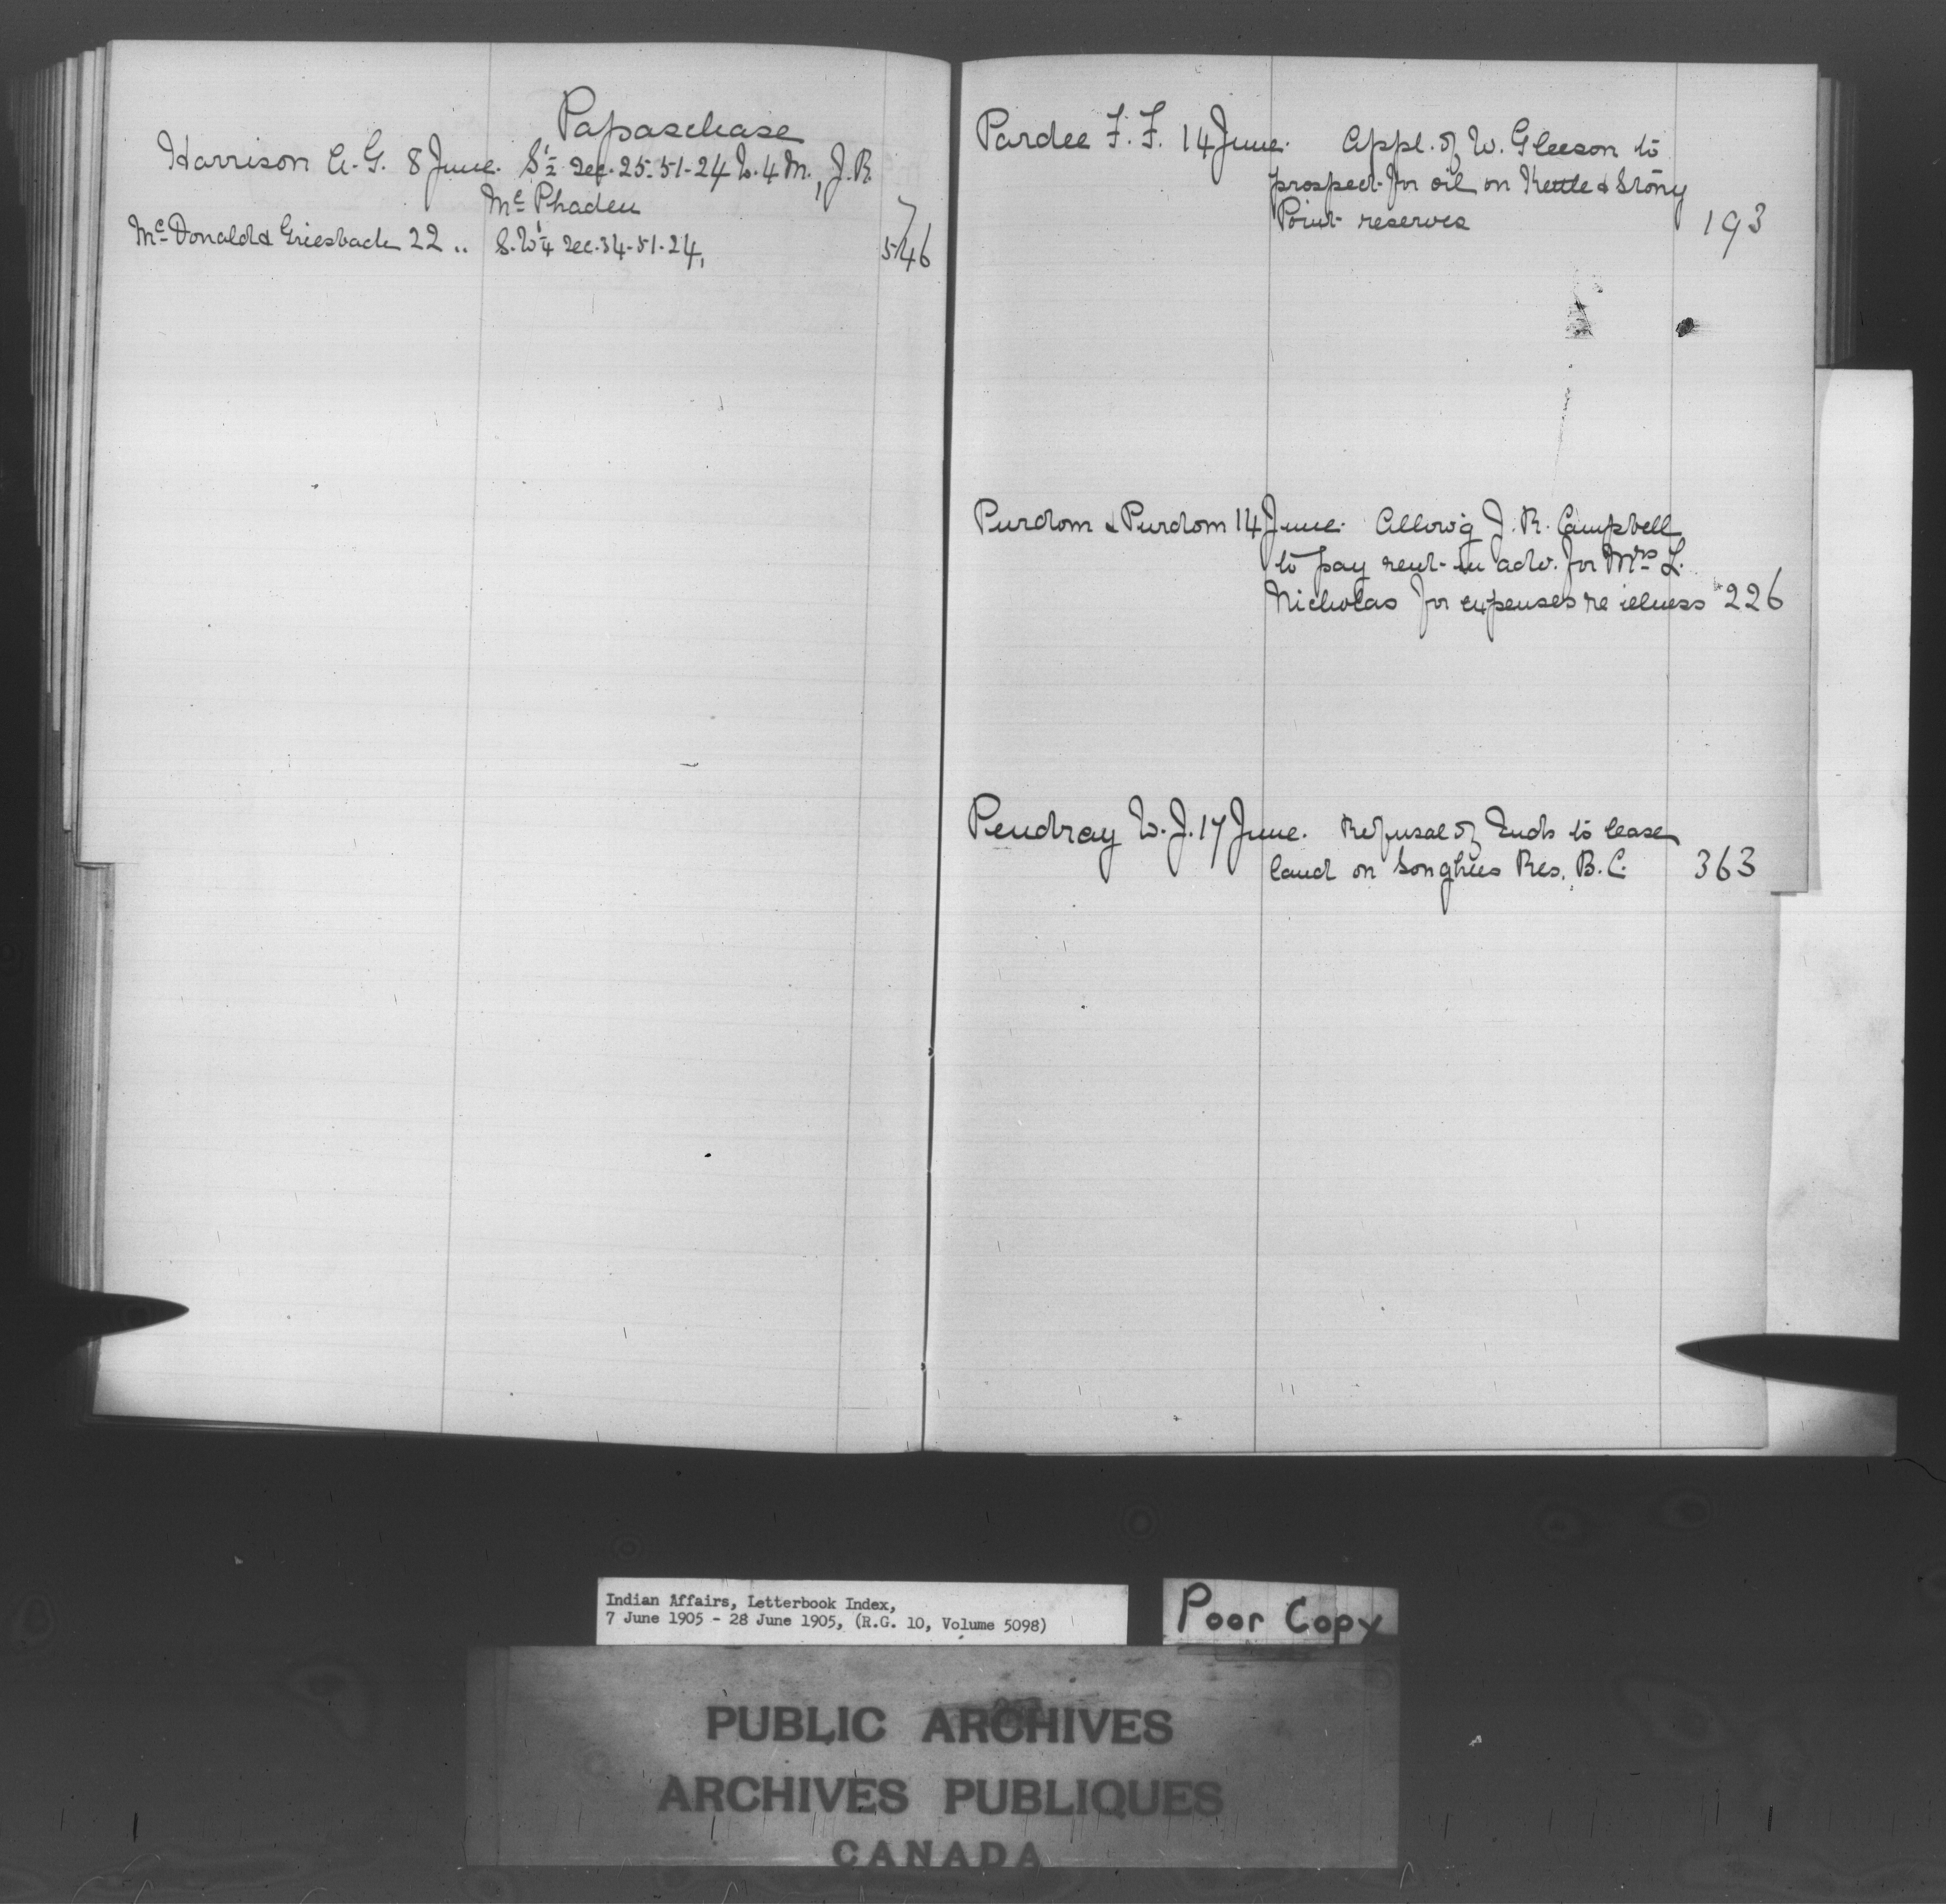 Papaschase
Harrison A. G. 8 June. S ½ Sec. 25-51-24 W. 4 M., J. R.
McPhaden 7
McDonald & Griesbach 22 .. S. W ¼ Sec. 34-51-24, 546
Pardee F. F. 14 June. Appl. of W. Gleeson to
prospect for oil on Kettle & Stony
Point reserves 193
Purdom & Purdom 14 June. Allow'g J. R. Campbell
to pay rent in adv. for Mrs L.
Nicholas for expenses re ilness 226
Pendray W. J. 17 June. Refusal of Inds to lease
land on Songhees Res. B. C. 363
Indian Affairs, Letterbook Index,
7 June 1905 - 28 June 1905, (R.G. 10, Volume 5098)
Poor Copy
PUBLIC ARCHIVES
ARCHIVES PUBLIQUES
CANADA